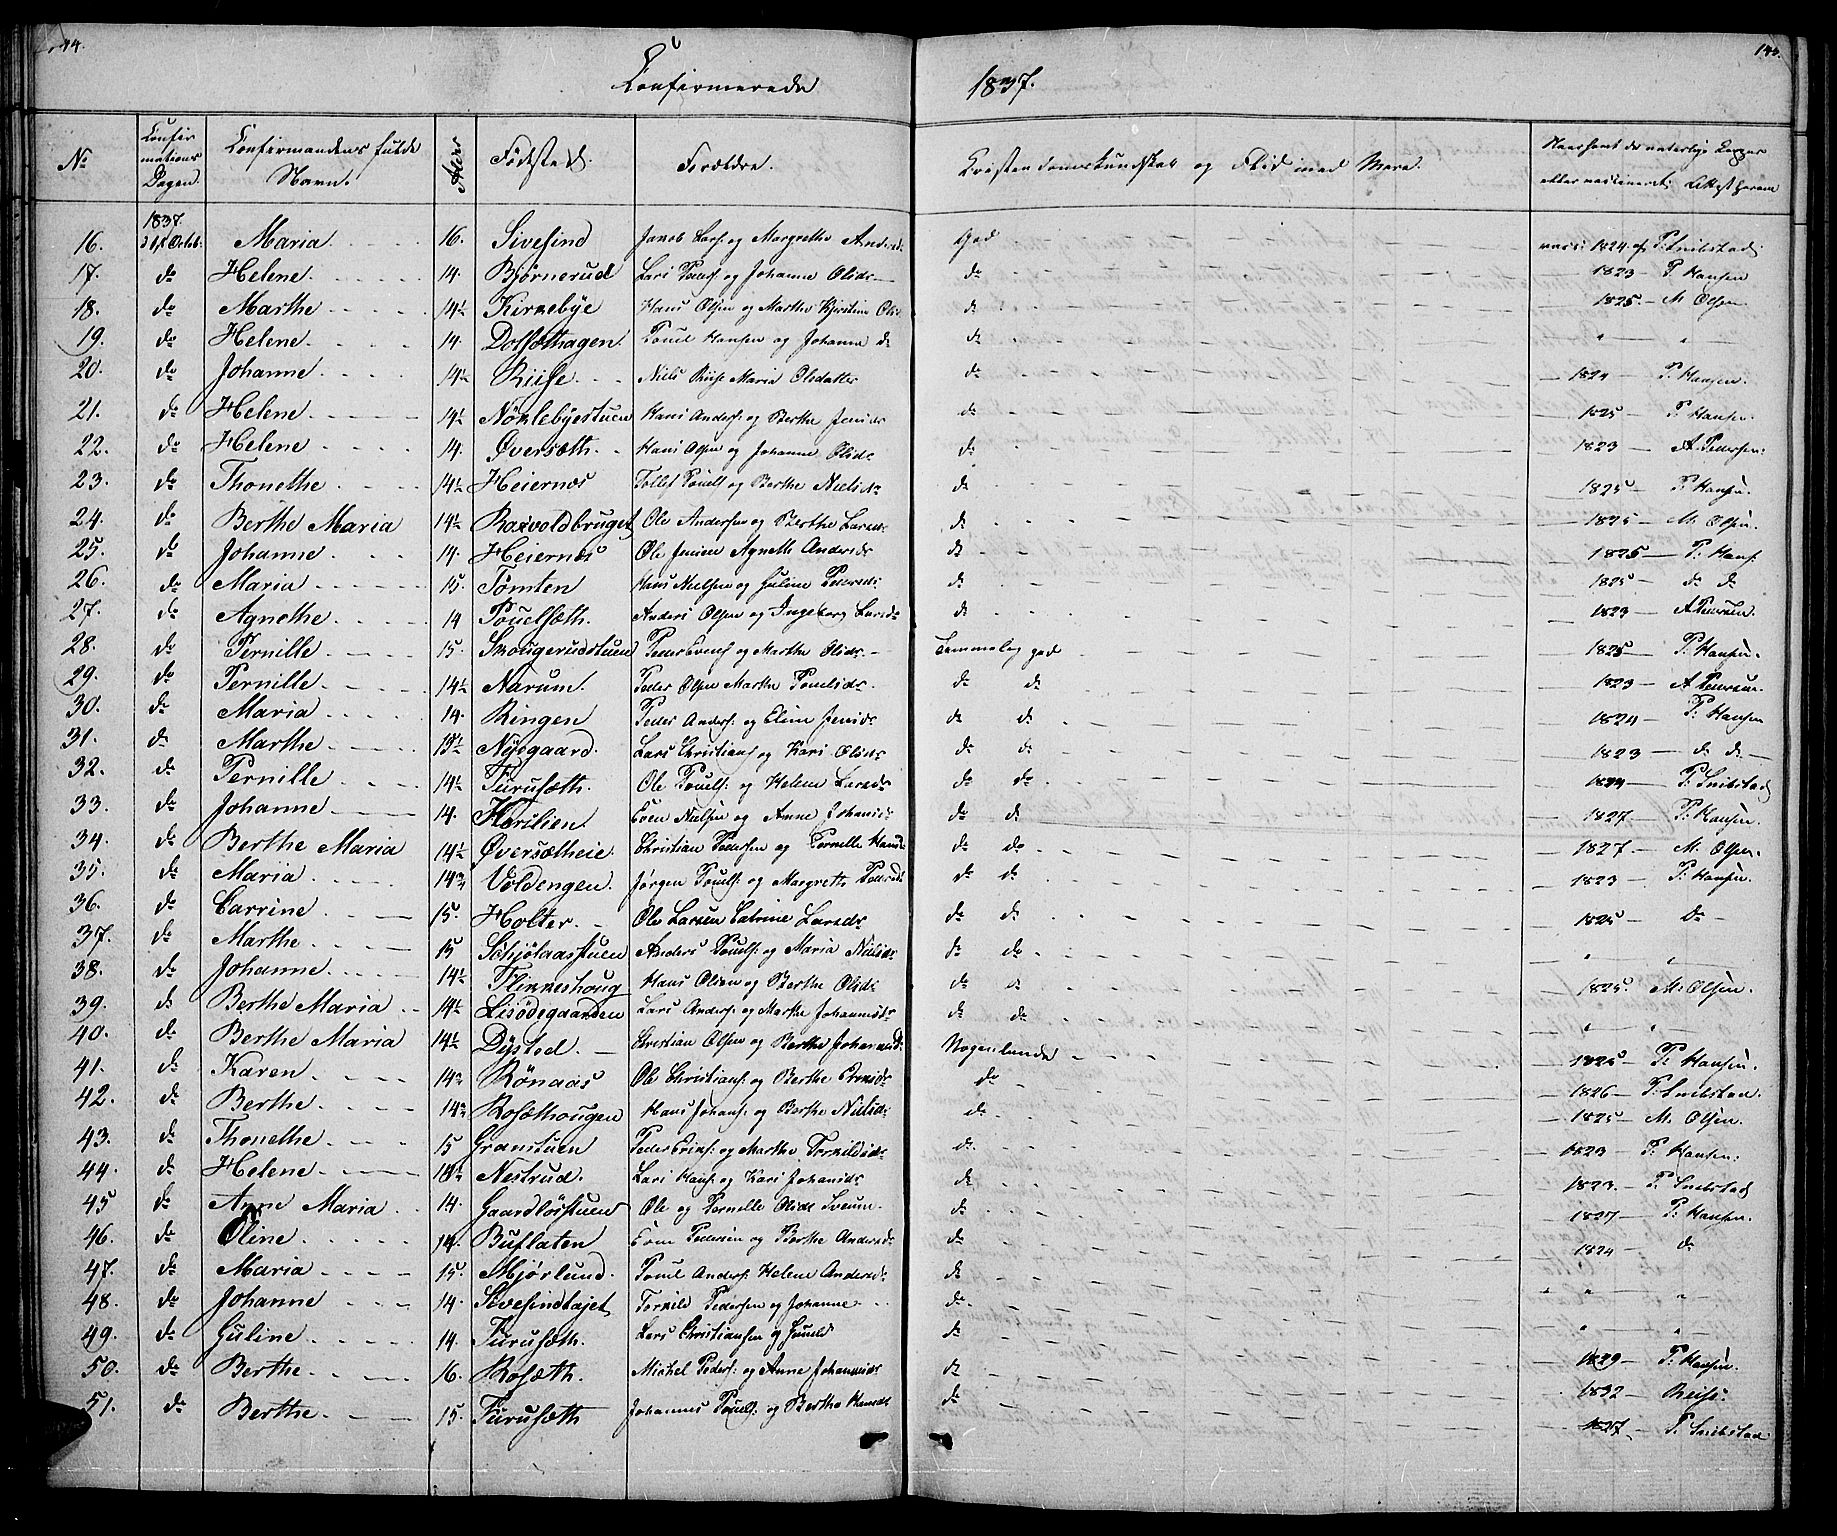 144.
145.
Confirmerede
1837.
No
Confirmations Dagen.
Confirmandens fulde Navn.
Alder
Fødested.
Forældre.
Christendomskundskab og Flid med Mere.
Naar havt de naturlige Kopper eller vaccineret
1837.
16. Octob: Maria 16. Sivesind Jacob Lars: og Margrethe Andersd: God vacc: 1824 af P. Snibstad:
17. do Helene 14. Bjørnerud Lars Pouels: og Johanne Olsdr do 1823 P. Hansen
18. do Marthe 14½ Kirkebye Hans Olsen og Marthe Kjerstine Olsd do 1825 M. Olsen
19. do Helene 14. Dolsethagen Pouel Hansen og Johanne do do " "
20. do Johanne 14½ Riise Niels Riise Maria Olsdatter do 1824 P. Hansen.
21. do Helene 14½ Nöklebyestuen Hans Anders: og Berthe Jensdr do 1825 P. Hansen.
22. do Helene 14. Øversæth Hans Olsen og Johanne Olsdr do 1823 A. Pedersen.
23. do Thonethe 14½ Heiernæs Tollef Pouels: og Berthe Nielsdr do 1825 P. Hansen.
24. do Berthe Maria 14½ Raxvoldbruget Ole Andersen og Berthe Larsdr do 1825 M. Olsen.
25. do Johanne 14. Heiernæs Ole Jensen Agnethe Andersdr do 1825 P. Hans:
26. do Maria 15. Tømten Hans Nielsen og Guline Pedersdr do 1825 do do
27. do Agnethe 14 Pouelsæth. Anders Olsen og Ingeborg Larsdr do 1823 A Pedersen.
28. do Pernille 15. Skougerudstuen Peder Evens: og Marthe Olsdr Temmelig god 1825 P. Hansen.
29. do Pernille 14½ Narum. Peder Olsen Marthe Pouelsdr. do do 1823 A Pedersen.
30. do Maria 14. Ringen Peder Anders: og Eline Jensdr do do 1824 P. Hansen
31. do Marthe 15½ Nyegaard. Lars Christians: og Kari Olsdr do do 1823 do do
32. do Pernille 14½ Furusæth. Ole Pouels: og Helene Larsdr do do 1824 P. Snibstad
33. do Johanne 14. Horilien Even Nielsen og Anne Johansdr do do 1827 P. Hansen.
34. do Berthe Maria 14½ Øversætheie. Christian Pedersen og Pernelle Hansdr do do 1827 M. Olsen.
35. do Maria 14¾ Voldengen. Jørgen Pouels: og Margrethe Pedersdr do do 1823 P. Hansen.
36. do Carrine 15. Holter. Ole Larsen Catrine Larsdr do do 1825 do
37. do Marthe 15 Schjölaasstuen Anders Pouels: og Maria Nielsdr do do " "
38. do Johanne 14½ Flikkeshoug Hans Olsen og Berthe Olsdr do do 1825. M. Olsen.
39. do Berthe Maria 14½ Lisödegaarden Lars Anders: og Marthe Johannesdr do do " "
40. do Berthe Maria 14½ Dystad. Christian Olsen og Berthe Johannesd: Nogenlunde 1825 P. Hansen.
41. do Karen 14¾ Rönaas Ole Christians: og Berthe do 1826 P. Snibstad.
42. do Berthe 14¾ Rosæthougen Hans Johans: og Berthe Nielsdr do 1825 M. Olsen.
43. do Thonethe 15 Granstuen Peder Eriks: og Marthe Torkildsdr do 1823 P. Hansen.
44. do Helene Nestrud. Lars Hans: og Kari Johansdr do 1823. P. Snibstad
45 do Anne Maria 14. Gaardlösstuen Ole og Pernelle Olsdr Sveum do 1827 P. Hansen.
46. do Oline 14. Buflaten Even Pedersen og Berthe Andersdr do 1824 do
47. do Maria 15. Mjörlund. Pouel Anders: Helene Andersdr do " "
48. do Johanne 14. Sivesindtajet Torkild Pedersen og Johanne do " "
49. do Guline 14. Furusæth. Lars Christiansen og do 1829 P. Hansen.
50. do Berthe 16. Rosæth. Michel Peders: og Anne Johannesdr do 1832 Reise
51. do Berthe 15. Furusæth Johannes Pouels: og Berthe Hansdr do 1827 P. Snibstad